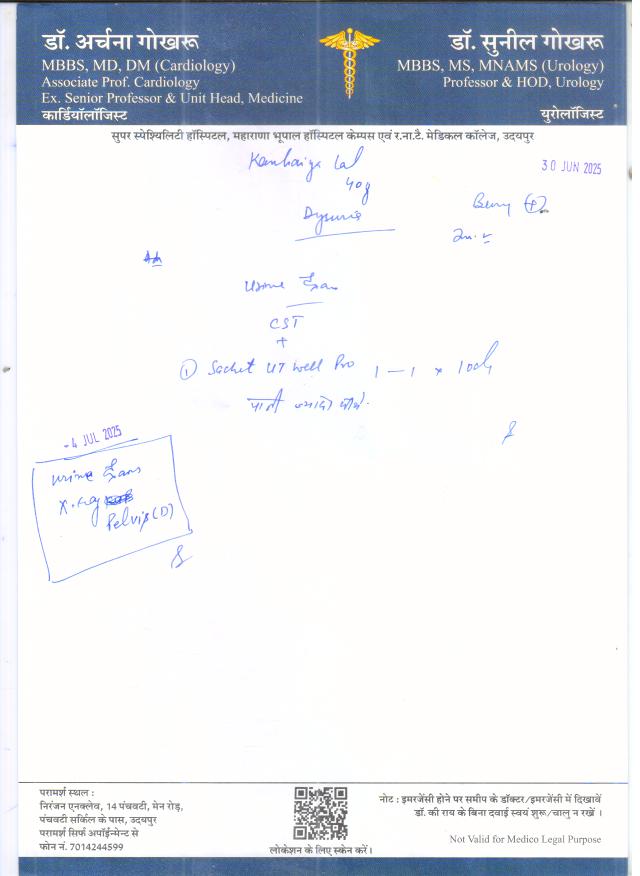 डॉ. अर्चना गोखरू
MBBS, MD, DM (Cardiology)
Associate Prof. Cardiology
Ex. Senior Professor & Unit Head, Medicine
कार्डियोलॉजिस्ट
डॉ. सुनील गोखरू
MBBS, MS, MNAMS (Urology)
Professor & HOD, Urology
यूरोलॉजिस्ट
सुपर स्पेश्यिलिटी हॉस्पिटल, महाराणा भूपाल हॉस्पिटल केम्पस एवं र.ना.टै. मेडिकल कॉलेज, उदयपुर
30 JUN 2025
Kanhaiya Lal
40y
Dysuria
Urine Exam
CST
+
① Sachet UT Well Pro 1 — 1 x 10d
पानी ज्यादा पीये.
-4 JUL 2025
Urine Exam
X-ray
Pelvis (D)
परामर्श स्थल :
निरंजन एनक्लेव, 14 पंचवटी, मेन रोड़,
पंचवटी सर्किल के पास, उदयपुर
परामर्श सिर्फ अपॉईन्मेन्ट से
फोन नं. 7014244599
लोकेशन के लिए स्केन करें।
नोट : इमरजेंसी होने पर समीप के डॉक्टर/इमरजेंसी में दिखावें
डॉ. की राय के बिना दवाई स्वयं शुरू/चालु न रखें ।
Not Valid for Medico Legal Purpose